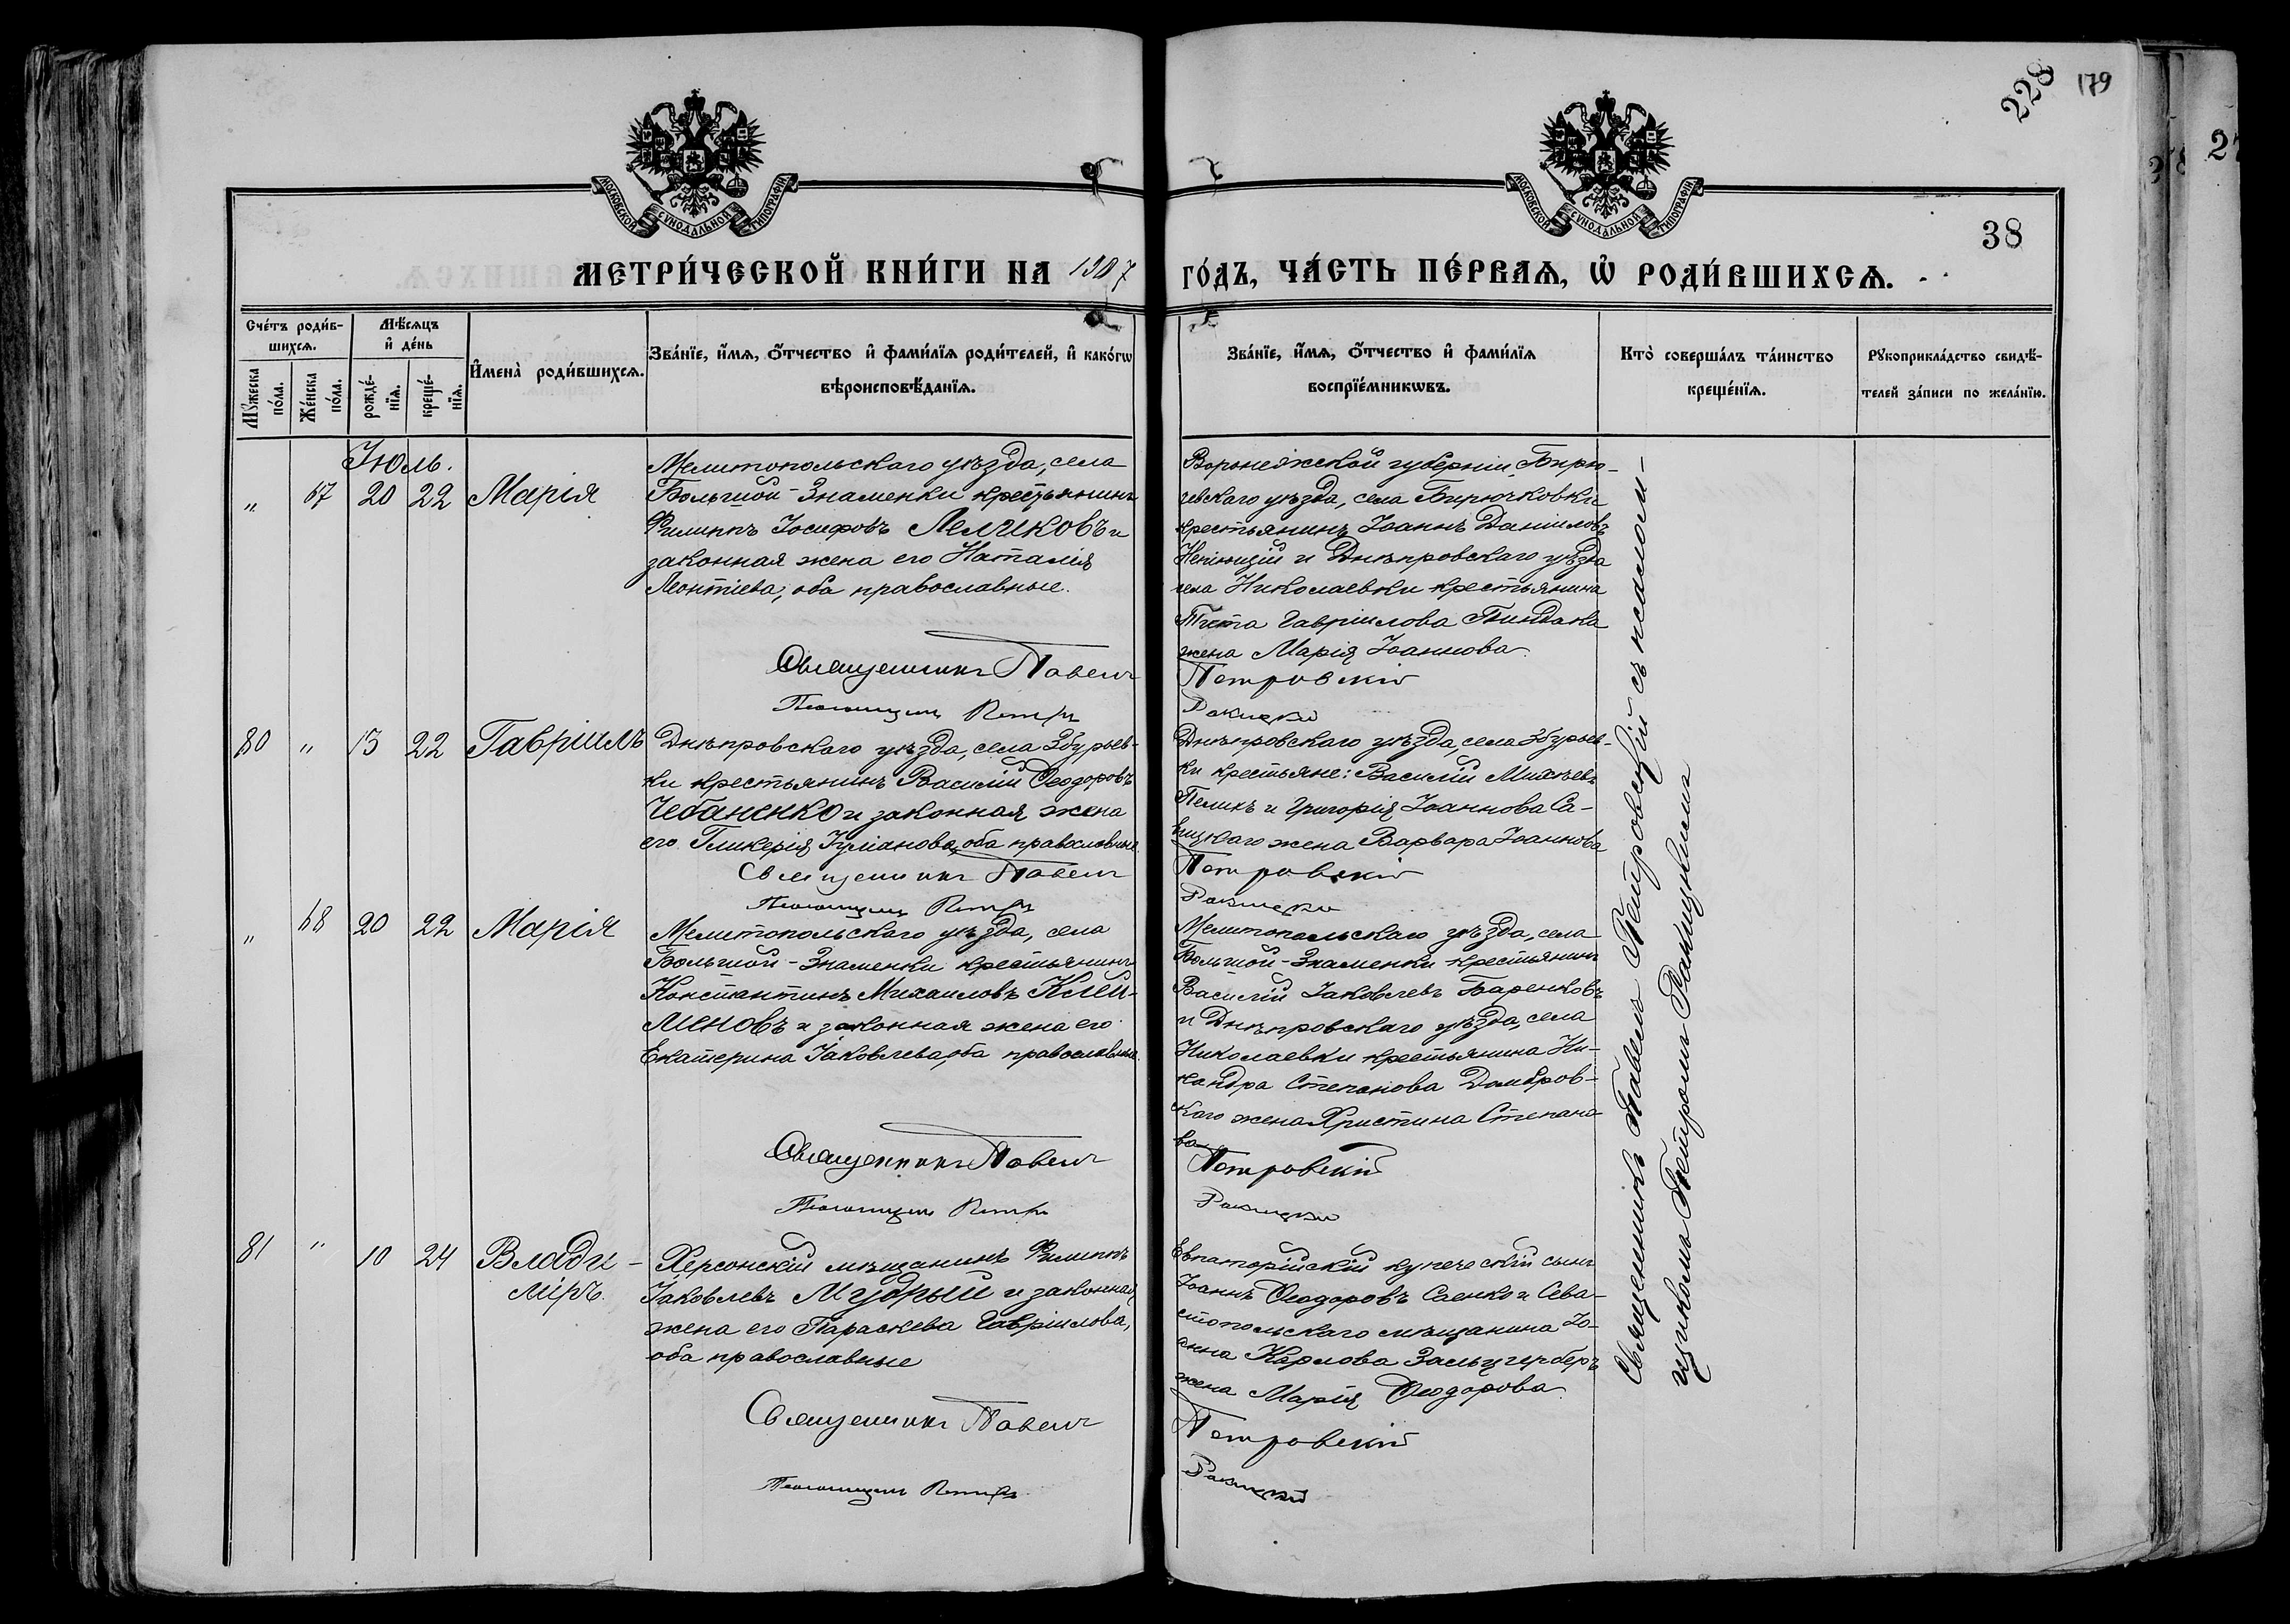 228
179
МОСКОВСКОЙ СѴНОДАЛЬНОЙ ТИПОГРАФІИ
МОСКОВСКОЙ СѴНОДАЛЬНОЙ ТИПОГРАФІИ
38
МЕТРИ́ЧЕСКОЙ КНИ́ГИ НА 1907
ГО́ДЪ, ЧА́СТЬ ПЕ́РВАѦ, Ѡ҆ РОДИ́ВШИХСѦ.
Сче́тъ роди́в-
шихсѧ.
Мѣ́сѧцъ
и҆ де́нь
Мꙋ́жеска
по́ла.
Же́нска
по́ла.
рожде́-
нїѧ.
креще́-
нїѧ.
И҆мена̀ роди́вшихсѧ.
Зва́нїе, и҆́мѧ, ѻ҆́тчество и҆ фами́лїѧ роди́телей, и҆ како́гѡ
вѣроисповѣ́данїѧ.
Зва́нїе, и҆́мѧ, ѻ҆́тчество и҆ фами́лїѧ
воспрїе́мникѡвъ.
Кто̀ соверша́лъ та́инство
креще́нїѧ.
Рꙋкоприкла́дство свидѣ́-
телей за́писи по жела́нїю.
Іюль.
" 67 20 22 Марія
Мелитопольскаго уѣзда, села
Большой-Знаменки крестьянинъ
Филиппъ Іосифовъ Леликовъ и
законная жена его Наталія
Леонтіева, оба православные.
Священникъ Павелъ
Псаломщикъ Петръ
Воронежской губерніи, Бирю-
чевскаго уѣзда, села Бирючковки
крестьянинъ Іоаннъ Даніиловъ
и Днѣпровскаго уѣзда
села Николаевки крестьянина
Тита Гавріилова
жена Марія Іоаннова.
Петровскій
Ракицкій
80 " 13 22 Гавріилъ
Днѣпровскаго уѣзда, села Збурьев-
ки крестьянинъ Василій Ѳеодоровъ
Чебаненко и законная жена
его Гликерія Іуліанова, оба православные.
Священникъ Павелъ
Псаломщикъ Петръ
Днѣпровскаго уѣзда, села Збурьев-
ки крестьяне: Василій Михѣевъ
Пелихъ и Григорія Іоаннова Са-
вицкаго жена Варвара Іоаннова
Петровскій
Ракицкій
" 68 20 22 Марія
Мелитопольскаго уѣзда, села
Большой-Знаменки крестьянинъ
Константинъ Михаиловъ Клей-
меновъ и законная жена его
Екатерина Іаковлева, оба православные.
Священникъ Павелъ
Псаломщикъ Петръ
Мелитопольскаго уѣзда, села
Большой-Знаменки крестьянинъ
Василій Іаковлевъ Баренковъ
и Днѣпровскаго уѣзда, села
Николаевки крестьянина Ни-
кандра Степанова Домбров-
скаго жена Христина Степано-
ва
Петровскій
Ракицкій
81 " 10 24 Влади-
міръ.
Херсонскій мѣщанинъ Филиппъ
Іаковлевъ Мудрый и законная
жена его Параскева Гавріилова,
оба православные
Священникъ Павелъ
Псаломщикъ Петръ
Евпаторійскій купеческій сынъ
Іоаннъ Ѳеодоровъ Саенко и Сева-
стопольскаго мѣщанина Іо-
анна Карлова Зальцгерберъ
жена Марія Ѳеодорова.
Петровскій
Ракицкій
Священникъ Павелъ Петровскій съ псалом-
щикомъ Петромъ Ракицкимъ